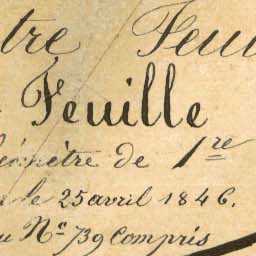 tre Feui
Feuille
éomètre de 1re
le 25 avril 1846.
u Nos 739 Compris